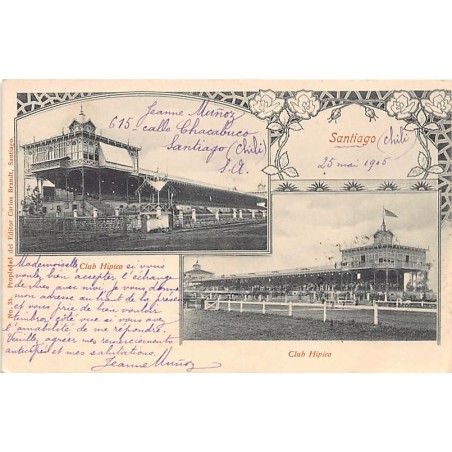 Jeanne Muñoz
615 - calle Chacabuco
Santiago (Chili)
S.A.
Santiago (Chili)
25 mai 1905
No. 38. Propriedad del Editor Carlos Brandt, Santiago.
Club Hípico
Mademoiselle si vous
voulez bien accepter l'échange
de vues avec moi, je vous donne
mon adresse au haut de la presse
et vous prie de bien vouloir
timbrer côté vue si vous avez
l'amabilité de me répondre.
Veuillez agréer mes remerciements
anticipés et mes salutations.
Jeanne Muñoz
Club Hípico